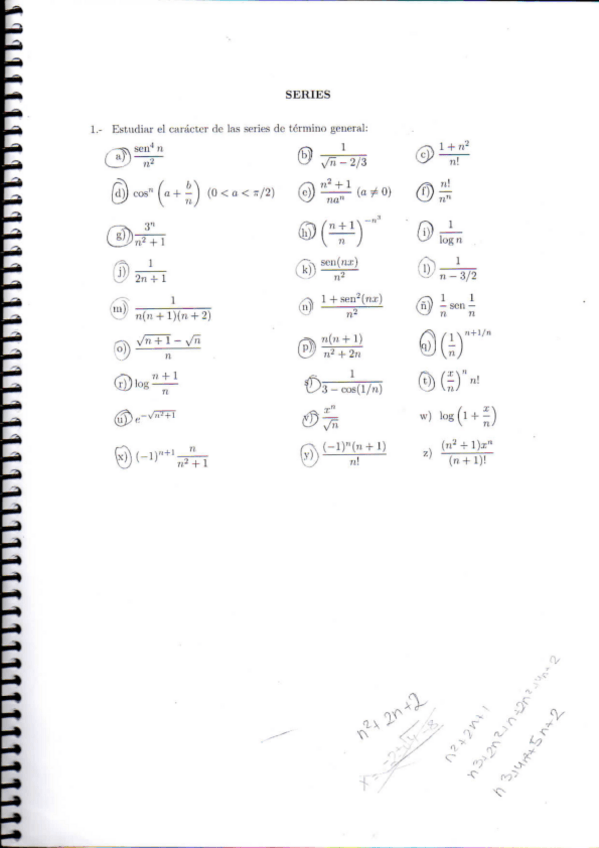 SERIES
1.- Estudiar el carácter de las series de término general:
a) sen⁴ n / n² b) 1 / (√n − 2/3) c) (1 + n²) / n!
d) cosⁿ (a + b/n) (0 < a < π/2) e) (n² + 1) / naⁿ (a ≠ 0) f) n! / nⁿ
g) 3ⁿ / (n² + 1) h) ((n + 1) / n)^(−n²) i) 1 / log n
j) 1 / (2n + 1) k) sen(nx) / n² l) 1 / (n − 3/2)
m) 1 / (n(n + 1)(n + 2)) n) (1 + sen²(nx)) / n² ñ) 1/n sen 1/n
o) (√(n + 1) − √n) / n p) n(n + 1) / (n² + 2n) q) (1/n)^(n+1/n)
r) log (n + 1)/n s) 1 / (3 − cos(1/n)) t) (x/n)ⁿ n!
u) e^(−√(n²+1)) v) xⁿ / √n w) log (1 + x/n)
x) (−1)ⁿ⁺¹ n / (n² + 1) y) (−1)ⁿ(n + 1) / n! z) (n² + 1)xⁿ / (n + 1)!
n²+2n+2
n²+2n+1